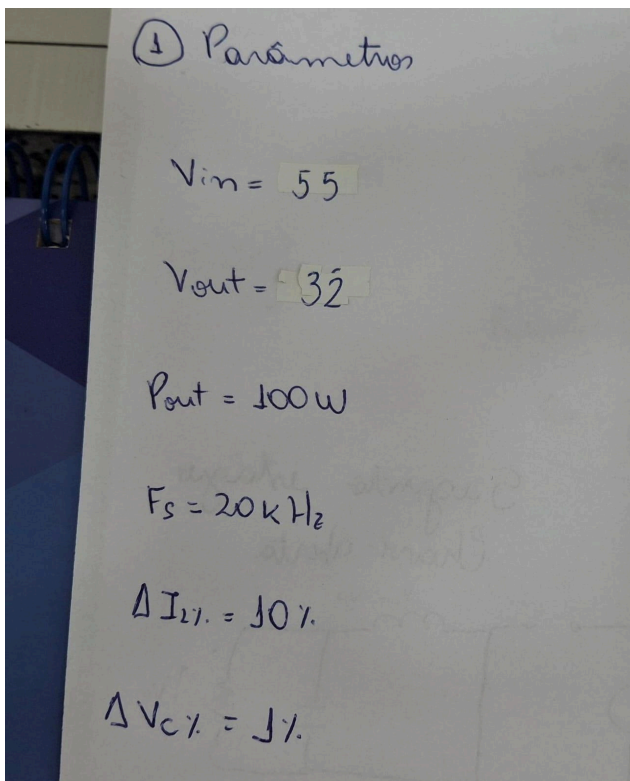 1 Parâmetros
Vin = 55
Vout = 32
Pout = 100W
Fs = 20kHz
ΔIL% = 10%
ΔVc% = 1%